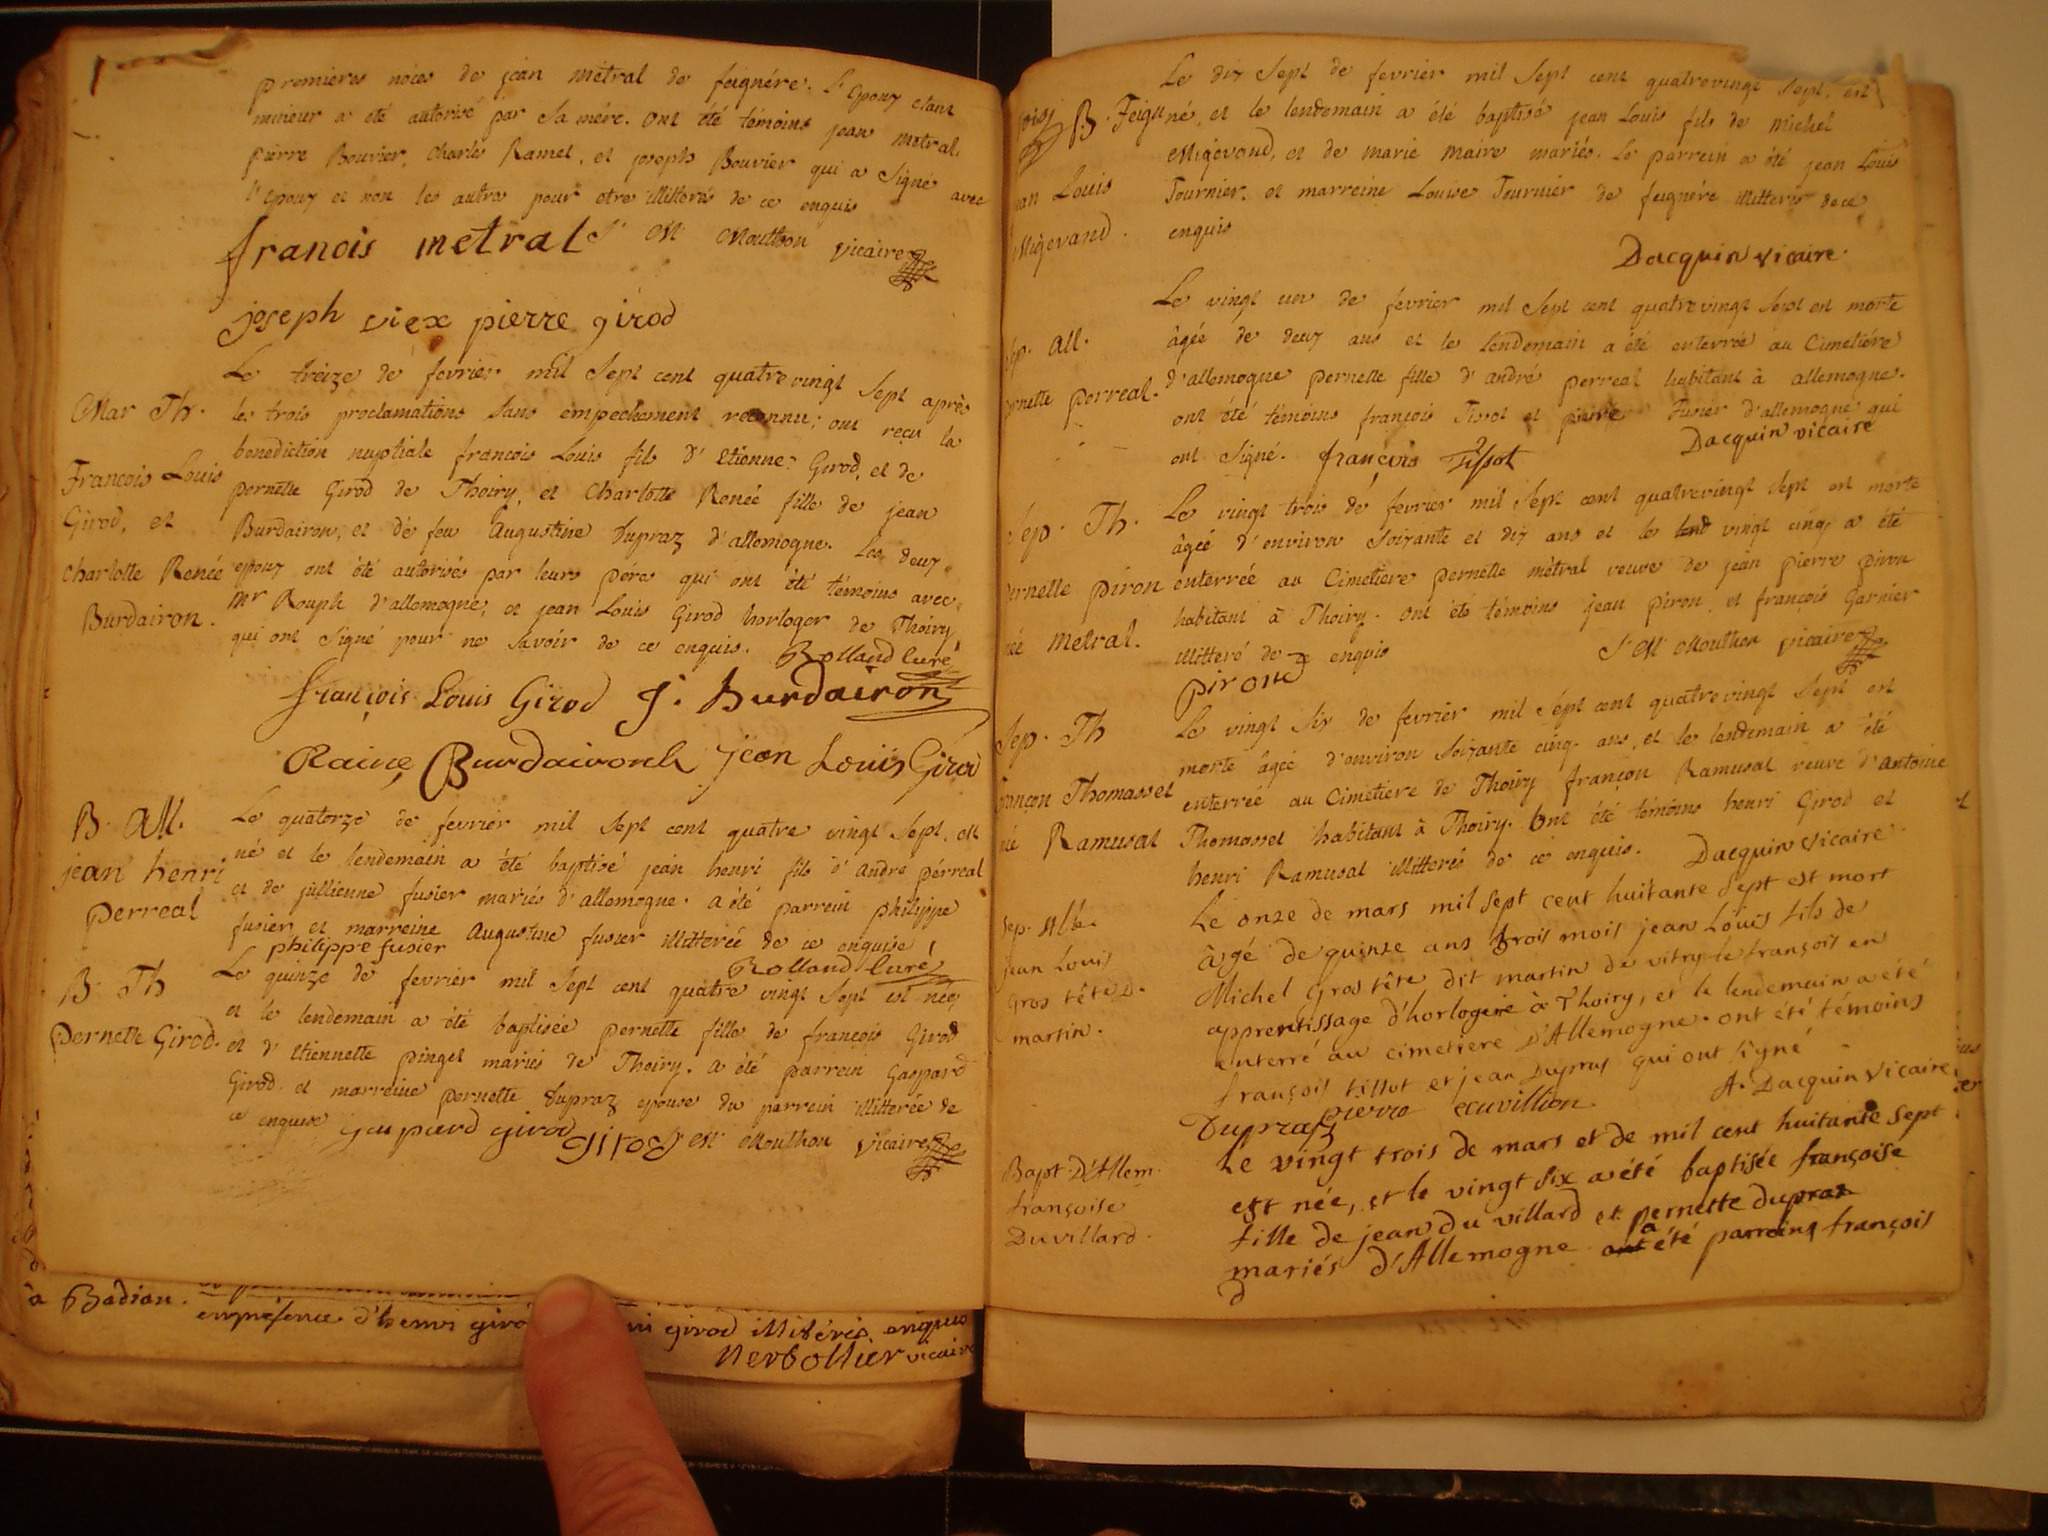 premieres noces de jean metral de feignére. L'Epoux etant
mineur a été autorisé par sa mére. Ont été témoins jean metral,
pierre Bouvier, charles Ramel, et joseph Bouvier qui a signé avec
l'epoux et non les autres pour etre illitterés de ce enquis
franois metral J' M Mouthon vicaire
joseph viex pierre girod
Mar Th.
François Louis
Girod, et
charlotte Renée
Burdairon.
Le treize de fevrier mil sept cent quatre vingt sept après
les trois proclamations sans empechement reconnu; ont reçu la
benediction nuptiale francois Louis fils d'etienne Girod, et de
pernette Girod de Thoiry, et Charlotte Renée fille de jean
Burdairon, et de feu Augustine dupraz d'allemogne. Les deux
epoux ont été autorisés par leurs péres qui ont été témoins avec
Mr Rouph d'allemogne, et jean Louis Girod horloger de Thoiry
qui ont signé pour ne savoir de ce enquis. Rolland Curé
françois Louis Girod J. Burdairon
Raine Burdaironh jean Louis Girod
B. All.
jean henri
perreal
Le quatorze de fevrier mil sept cent quatre vingt sept, est
né et le lendemain a été baptisé jean henri fils d'andré pérreal
et de jullienne fusier mariés d'allemogne. a été parrein philippe
fusier, et marreine Augustine fusier illitterée de ce enquise
philippe fusier Rolland Curé
B. Th
pernette Girod.
Le quinze de fevrier mil sept cent quatre vingt sept est née
et le lendemain a été baptisée pernette fille de françois Girod
et d'etiennette pinget mariés de Thoiry. a été parrein Gaspard
Girod, et marreine pernette dupraz epouse du parrein illitterée de
ce enquise gaspard girod J' M Mouthon vicaire
à Badian.
enpresence d'henri giro
ni girod illiterés enquis
Nerbollier vicaire
B. Feign
an Louis
Migevand.
Le dix sept de fevrier mil sept cent quatrevingt sept, est
né, et le lendemain a été baptisé jean Louis fils de Michel
Migevand, et de marie maire mariés. Le parrein a été jean Louis
Tournier, et marreine Louise Tournier de feignére illitterés de ce
enquis
Dacquin vicaire.
Sep. All.
pernette perreal.
Le vingt un de fevrier mil sept cent quatrevingt sept est morte
âgée de deux ans et le lendemain a été enterrée au Cimetiére
d'allemogne pernette fille d'andré perreal habitant à allemogne.
ont été témoins françois Tissot et pierre fusier d'allemogne qui
ont signé. françois Tissot Dacquin vicaire
Sep. Th.
pernette piron
née metral.
Le vingt trois de fevrier mil sept cent quatrevingt sept est morte
âgée d'environ soixante et dix ans et le lend vingt cinq a été
enterrée au Cimetiere pernette métral veuve de jean pierre piron
habitant à Thoiry. ont été témoins jean piron, et françois Garnier
illitteré de ce enquis J' M Mouthon vicaire
piron
Sep. Th
françon Thomasset
née Ramusat
Le vingt six de fevrier mil sépt cent quatrevingt sept est
morte âgée d'environ soixante cinq ans, et le lendemain a été
enterrée au Cimetiere de Thoiry françon Ramusat veuve d'antoine
Thomasset habitant à Thoiry. Ont été témoins henri Girod et
henri Ramusat illitterés de ce enquis. Dacquin vicaire.
sep. All.
jean Louis
Gros tête D.
martin.
Le onze de mars mil sept cent huitante sept est mort
âgé de quinze ans trois mois jean Louis fils de
Michel gros tête dit martin de vitry-le françois en
apprentissage d'horlogerie à Thoiry, et le lendemain a été
enterré au cimetiere d'Allemogne. ont été témoins
françois tissot et jean Dupras qui ont signé
Dupraz pierre ecuvillion A. Dacquin vicaire
Bapt. D'Allem.
françoise
Duvillard.
Le vingt trois de mars et de mil cent huitante sept
est née, et le vingt six a été baptisée françoise
fille de jean du villard et pernette dupraz
mariés d'Allemogne ont a été parreing françois
d